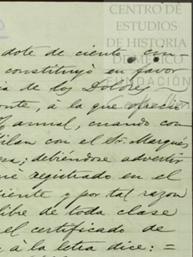 CENTRO DE
ESTUDIOS
DE HISTORIA
DE MEXICO
FUNDACIÓN
dote de ciento cin-
constituyó en favor
ia de los Dolores
onte, á la que ofreció
anual, cuando con-
ilan con el Sr. Marqués
debiéndose advertir
registrado en el
iente y por tal razon
libre de toda clase
el certificado de
á la letra dice: =